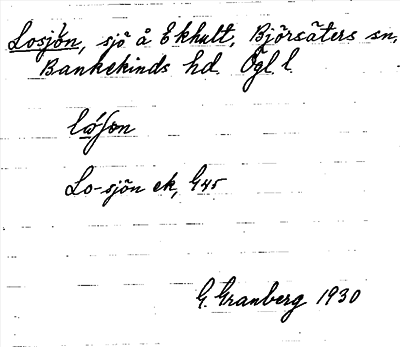 Losjön, sjö å Ekhult, Björsäters sn,
Bankekinds hd. Ögl. l.
Lo-sjön ek, G45
G. Granberg 1930